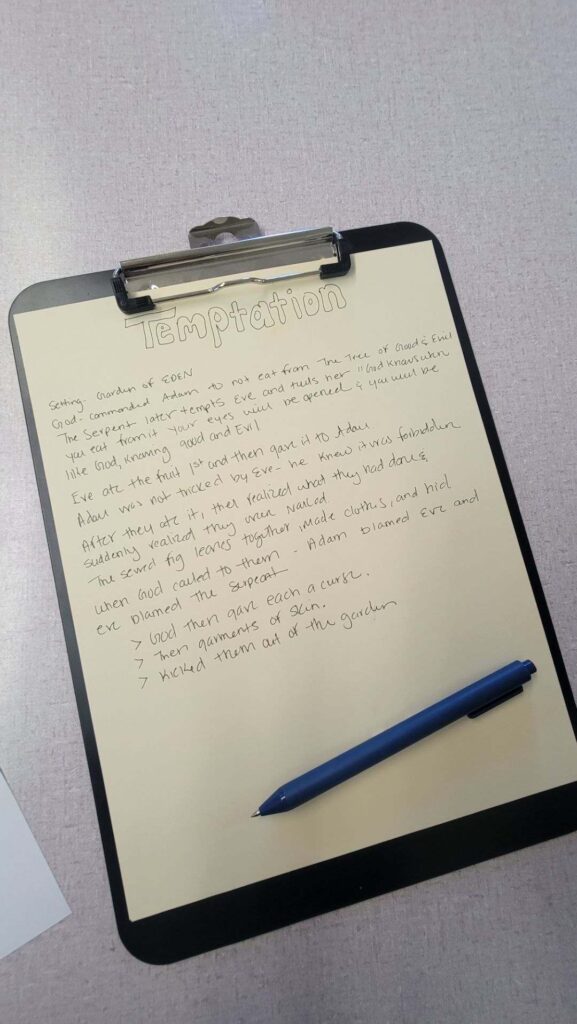 Temptation
Setting- Garden of EDEN
God- commanded Adam to not eat from The Tree of Good & Evil
The Serpent later tempts Eve and tells her "God knows when
you eat from it your eyes will be opened & you will be
like God, knowing good and Evil
Eve ate the fruit 1st and then gave it to Adam
Adam was not tricked by Eve- he knew it was forbidden
After they ate it, they realized what they had done &
suddenly realized they were naked
The sewed fig leaves together, made clothes, and hid
when God called to them - Adam blamed Eve and
eve blamed the serpent
> God then gave each a curse.
> Then garments of skin.
> Kicked them out of the garden